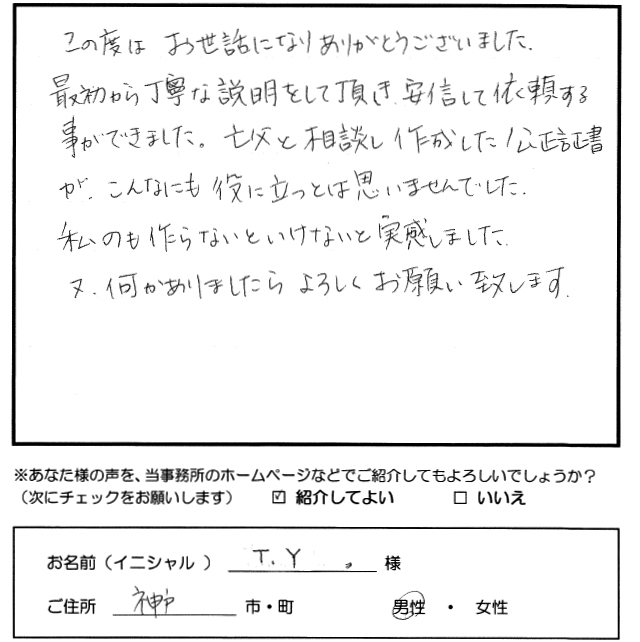 この度は お世話になりありがとうございました.
最初から丁寧な説明をして頂き、安信して依頼する
事ができました。亡父と相談し作成した公正証書
が、こんなにも役に立つとは思いませんでした.
私のも作らないといけないと実感しました.
又、何かありましたら よろしくお願い致します.
※あなた様の声を、当事務所のホームページなどでご紹介してもよろしいでしょうか？
（次にチェックをお願いします） ☑ 紹介してよい □ いいえ
お名前（イニシャル） T.Y. 様
ご住所 神戸 市・町 男性 ・ 女性